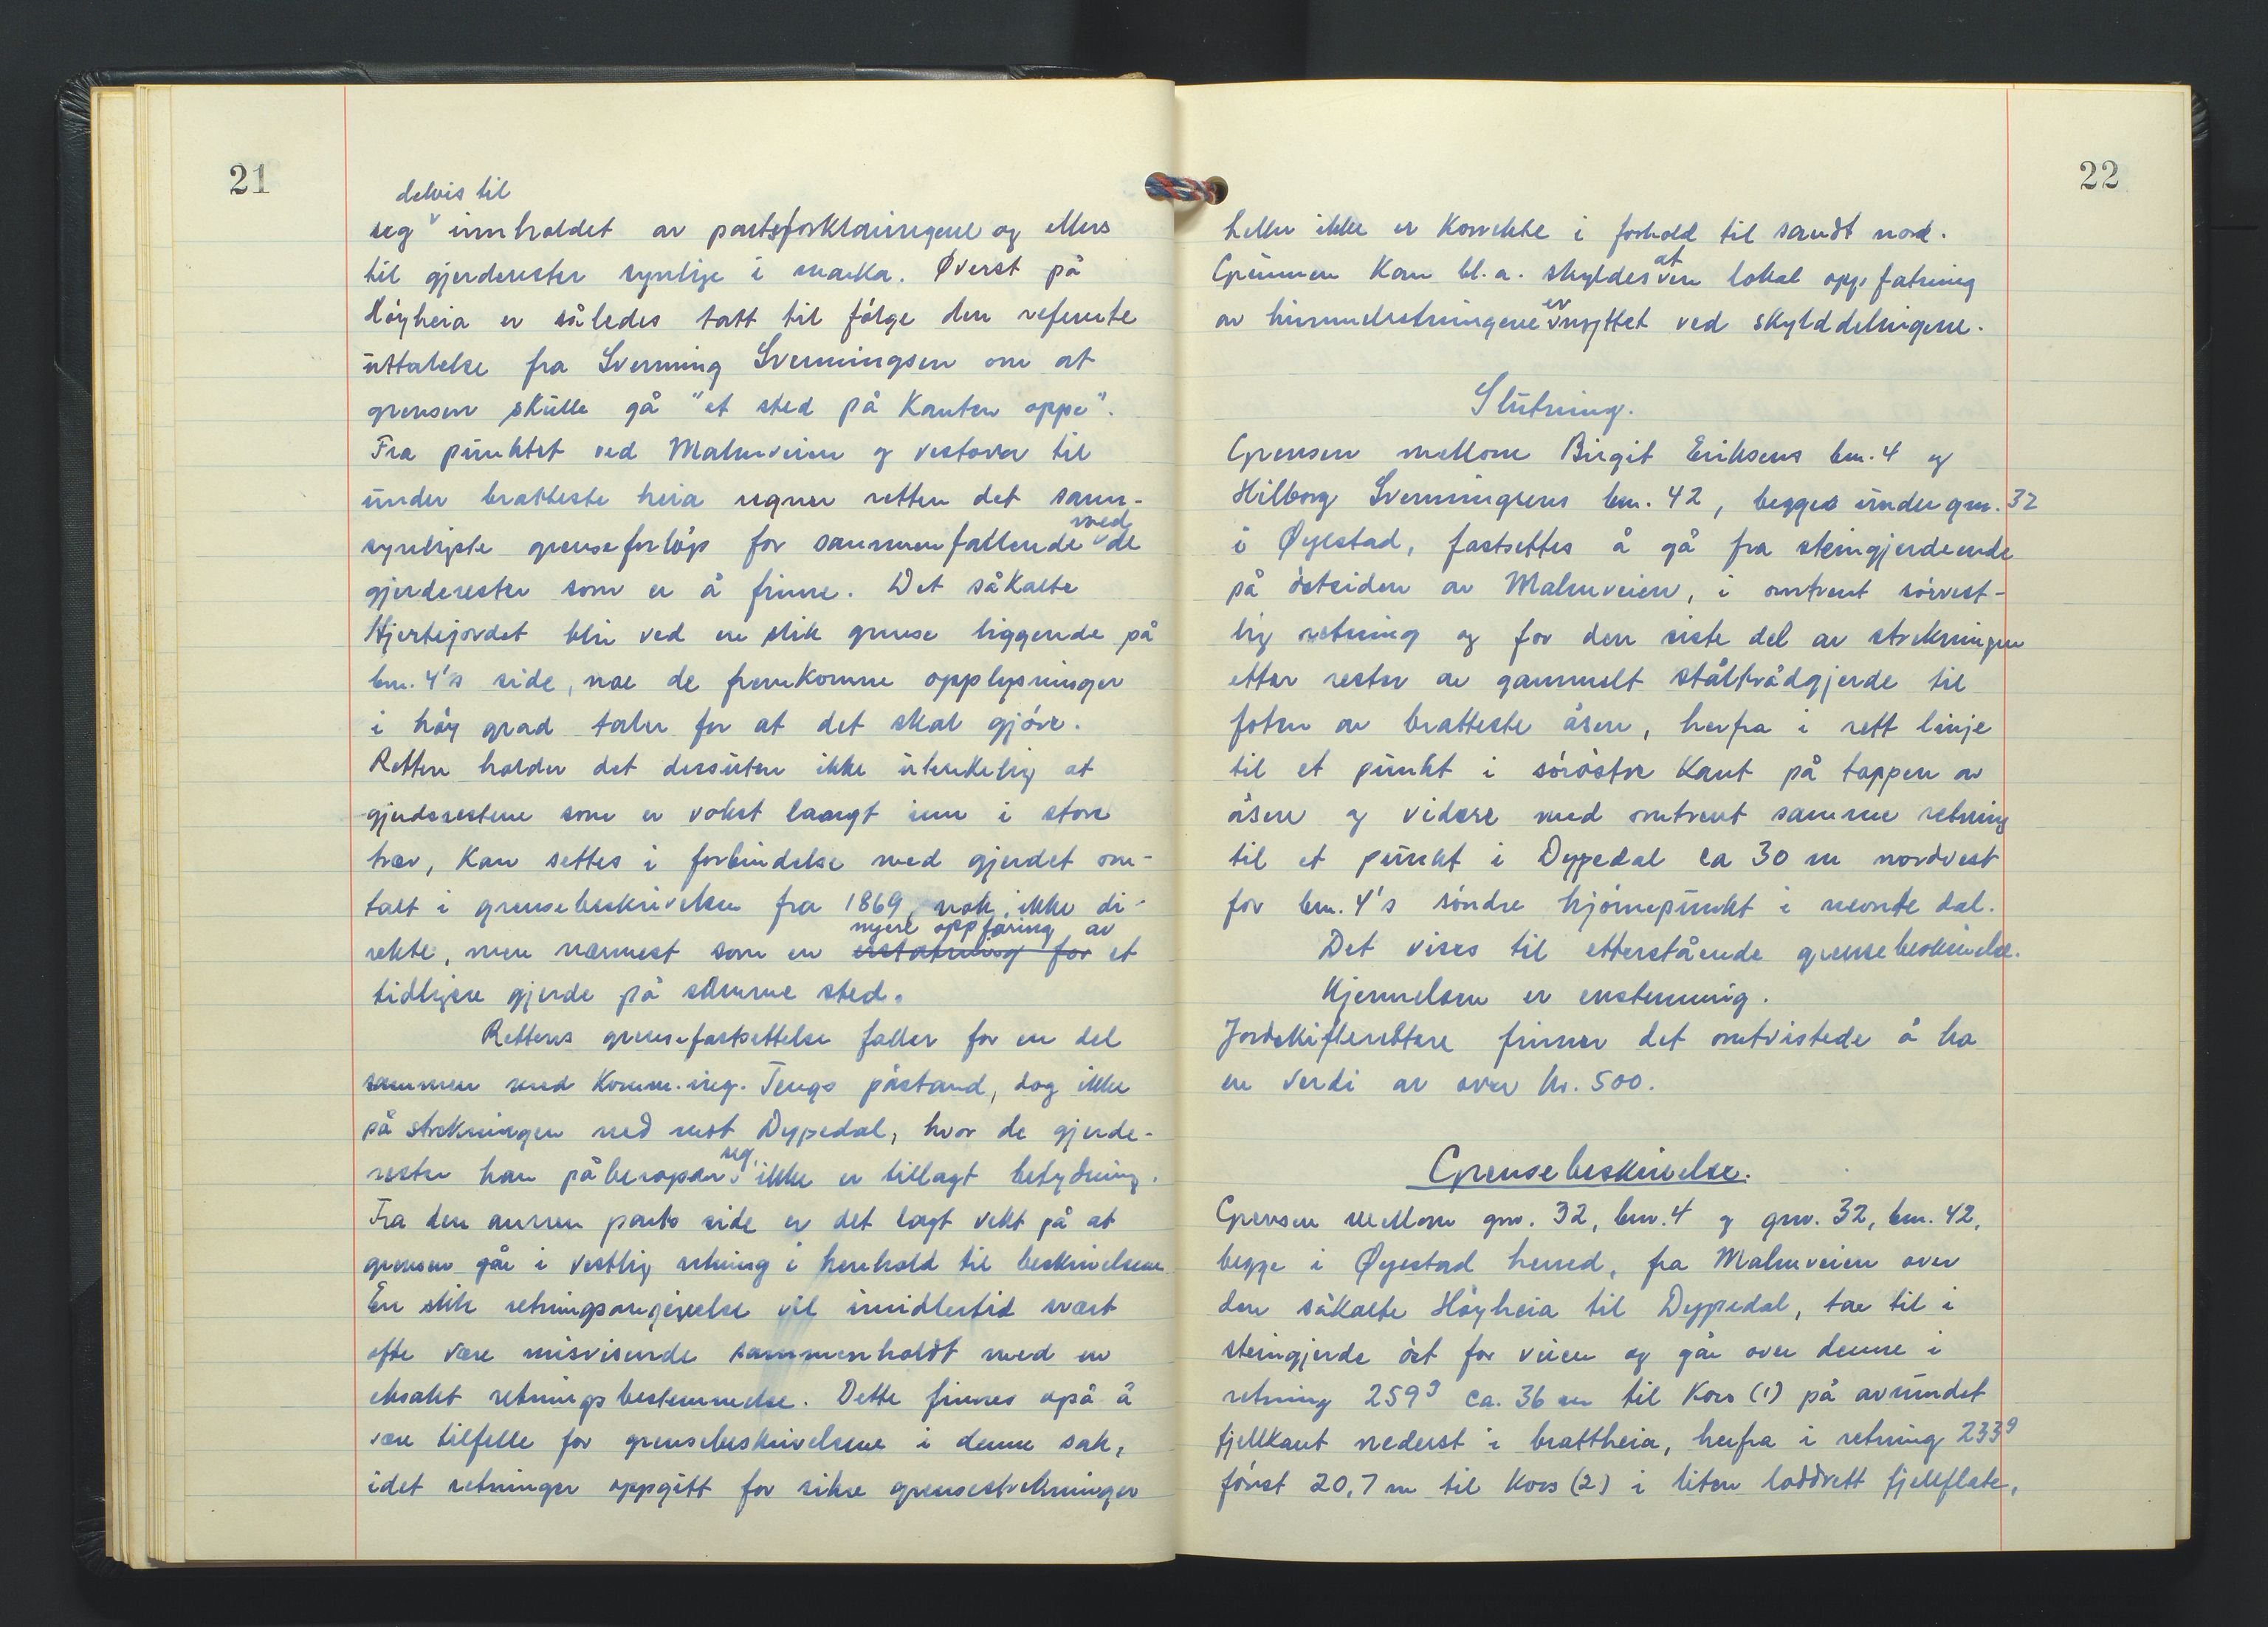 21
delvis til
seg innholdet av partsforklaringene og ellers
til gjerderester synlige i marka. Øverst på
Høyheia er således tatt til følge den refererte
uttalelse fra Svenning Svenningsen om at
grensen skulle gå "et sted på kanten oppe".
Fra punktet ved Malmveien og vestover til
under bratteste heia regner retten det sann-
synligste grenseforløp for sammenfallende med de
gjerderester som er å finne. Det såkalte
Hjertejordet blir ved en slik grense liggende på
bnr. 4's side, noe de fremkomne opplysninger
i høy grad taler for at det skal gjøre.
Retten holder det dessuten ikke utenkelig at
gjerderestene som er vokst langt inn i store
trær, kan settes i forbindelse med gjerdet om-
talt i grensebeskrivelsen fra 1869, nok ikke di-
nyere oppføring av
rekte, men nærmest som en erstatning for et
tidligere gjerde på samme sted.
Rettens grensefastsettelse faller for en del
sammen med Komm.ing. Tengs påstand, dog ikke
på strekningen ned mot Dypedal, hvor de gjerde-
rester han påberoper seg, ikke er tillagt betydning.
Fra den annen parts side er det lagt vekt på at
grensen går i vestlig retning i henhold til beskrivelsene.
En slik retningsangivelse vil imidlertid svært
ofte være misvisende sammenholdt med en
eksakt retningsbestemmelse. Dette finnes også å
være tilfelle for grensebeskrivelsene i denne sak,
idet retninger oppgitt for sikre grensestrekninger
22
heller ikke er korrekte i forhold til sandt nord.
Grunnen kan bl.a. skyldes at en lokal oppfatning
av himmelretningene er nyttet ved skylddelingene.
Slutning.
Grensen mellom Birgit Eriksens bnr. 4 og
Hilborg Svenningsens bnr. 42, begges under gnr. 32
i Øyestad, fastsettes å gå fra steingjerdeende
på østsiden av Malmveien, i omtrent sørvest-
lig retning og for den siste del av strekningen
etter rester av gammelt ståltrådgjerde til
foten av bratteste åsen, herfra i rett linje
til et punkt i sørøstre kant på toppen av
åsen og videre med omtrent samme retning
til et punkt i Dypedal ca 30 m nordvest
for bnr. 4's søndre hjørnepunkt i nevnte dal.
Det vises til etterstående grensebeskrivelse.
Kjennelsen er enstemmig.
Jordskifteretten finner det omtvistede å ha
en verdi av over kr. 500.
Grensebeskrivelse.
Grensen mellom gnr. 32, bnr. 4 og gnr. 32, bnr. 42,
begge i Øyestad herred, fra Malmveien over
den såkalte Høyheia til Dypedal, tar til i
steingjerde øst for veien og går over denne i
retning 259g ca. 36 m til kors (1) på avrundet
fjellkant nederst i brattheia, herfra i retning 233g
først 20,7 m til kors (2) i liten loddrett fjellflate,